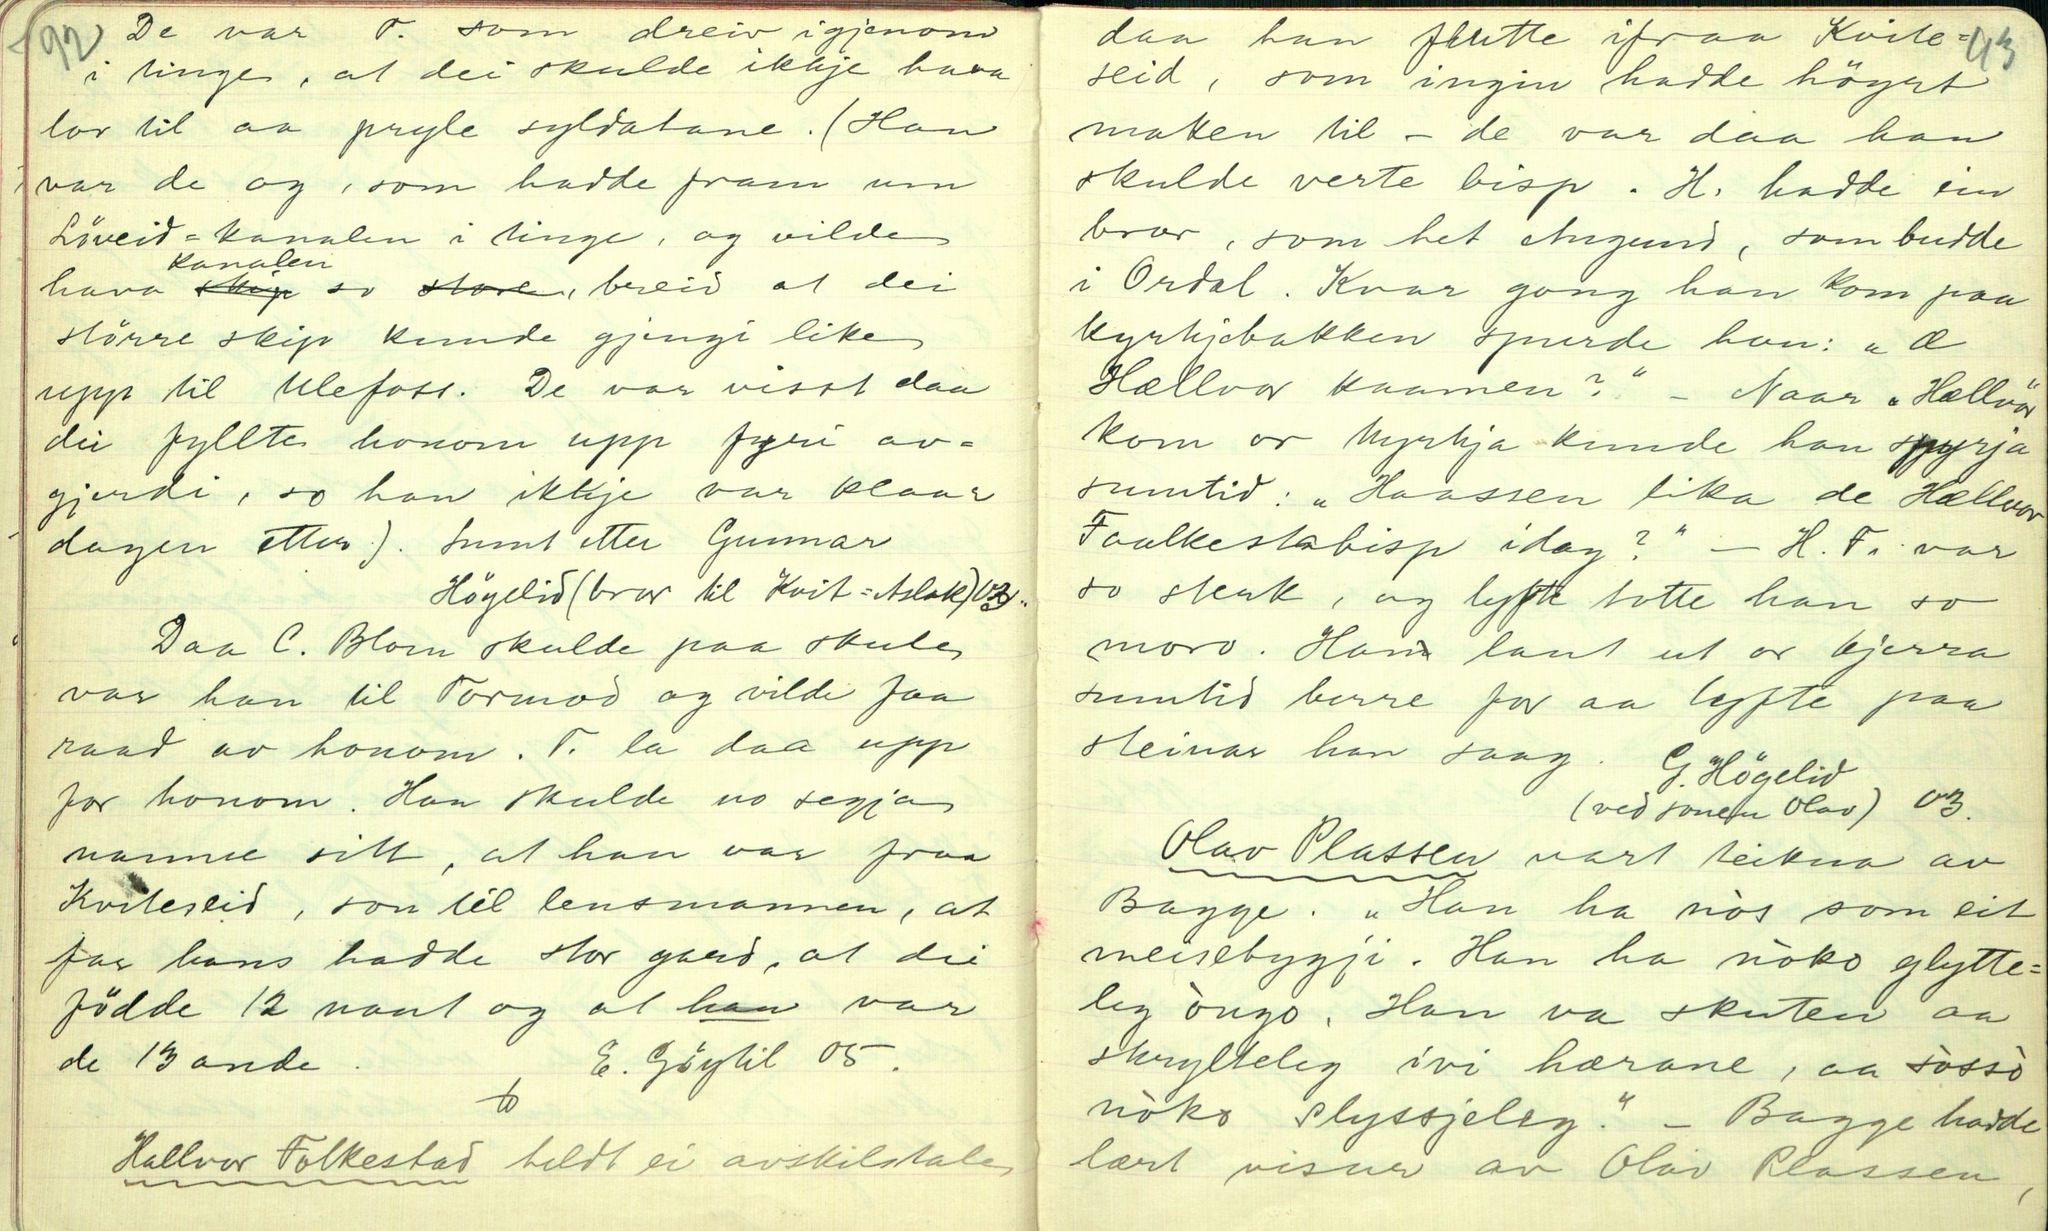 92
De var T. som dreiv igjenom
i tinge, at dei skulde ikkje hava
lov til aa pryle syldatane. (Han
var de og, som hadde fram um
Löveid=kanalen i tinge, og vilde
kanalen
hava skip so store, breid at dei
större skip kunde gjengi like
upp til Ulefoss. De var visst daa
dei fyllte honom upp fyri av=
gjerdi, so han ikkje var klaar
dagen etter). Sumt etter Gunnar
Högelid (bror til Kvit=Aslak) 03.
Daa C. Blom skulde paa skule
var han til Tormod og vilde faa
raad av honom. T. la daa upp
for honom. Han skulde no segja
namne sitt, at han var fraa
Kviteseid, son til lensmannen, at
far hans hadde stor gard, at dei
födde 12 naut og at han var
de 13ande. E. Göytil 05.
Hallvor Folkestad heldt ei avskilstale
93
daa han flutte ifraa Kvite=
seid, som ingin hadde höyrt
maken til – de var daa han
skulde verte bisp. H. hadde ein
bror, som het Augund, som budde
i Ordal. Kvar gong han kom paa
kyrkjebakken spurde han: „Æ
Hællvor kaamen?“ – Naar „Hællvör
kom or kyrkja kunde han spyrja
sumtid: „Haassen lika de Hællvor
Faalkestabisp idag?“ – H. F. var
so sterk, og lyfte totte han so
moro. Han laut ut or kjerra
sumtid berre for aa lyfte paa
steinar han saag.
G. Högelid
(ved sonen Olav) 03.
Olav Plassen vart teikna av
Bagge. „Han ha nòs som eit
meisebygji. Han ha nòko glytte=
leg òugo. Han va skuten aa
skrylteleg ivi hærane, aa sòssò
nòko slyssjeleg.“ – Bagge hadde
lært visur av Olav Plassen,